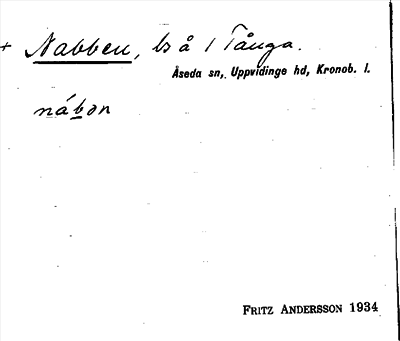 + Nabben, ls å 1 Tånga.
Åseda sn, Uppvidinge hd, Kronob. l.
nábən
FRITZ ANDERSSON 1934